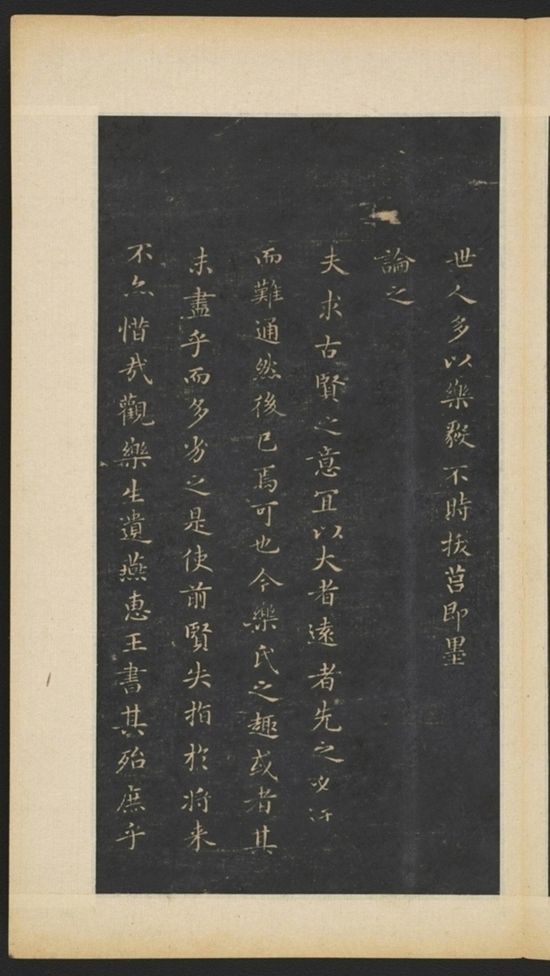 世人多以樂毅不時拔莒即墨
論之
夫求古賢之意宜以大者遠者先之必
而難通然後已焉可也今樂氏之趣或者其
未盡乎而多劣之是使前賢失指於将来
不亦惜哉觀樂生遺燕惠王書其殆庶乎